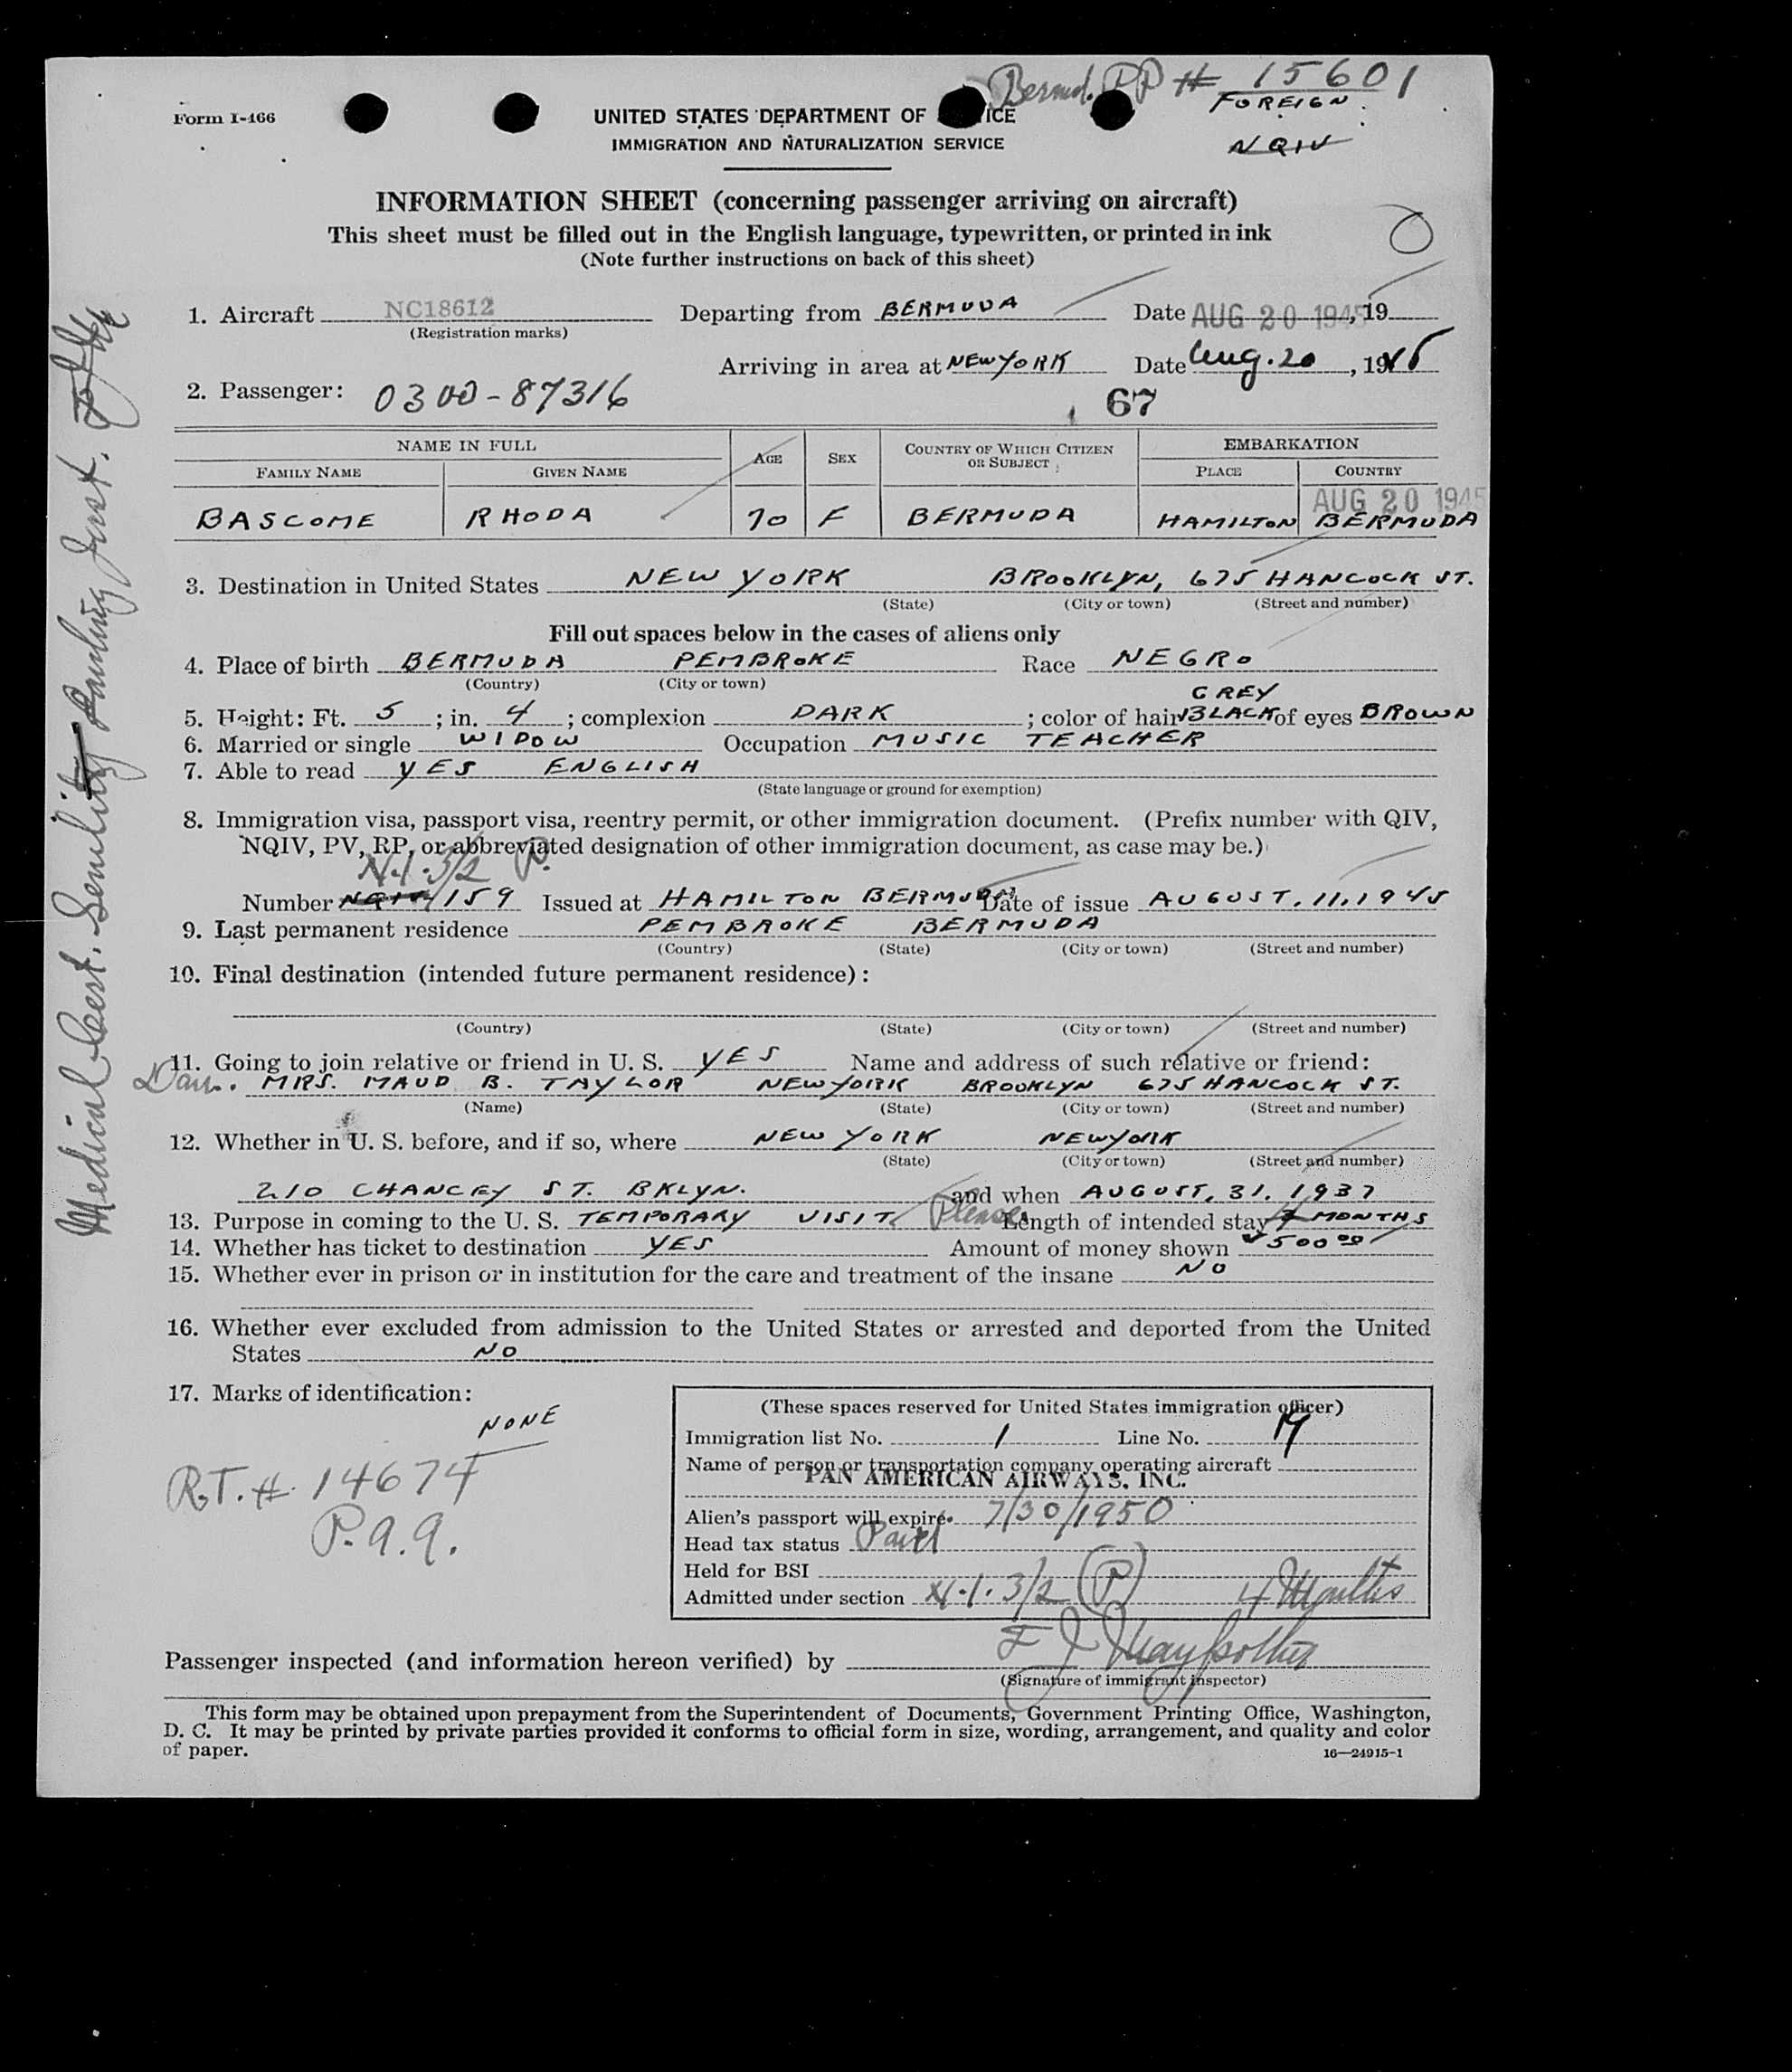 Bermd. PP # 15601
Form I-466
UNITED STATES DEPARTMENT OF ICE
FOREIGN
IMMIGRATION AND NATURALIZATION SERVICE
NQIV
INFORMATION SHEET (concerning passenger arriving on aircraft)
This sheet must be filled out in the English language, typewritten, or printed in ink
(Note further instructions on back of this sheet)
1. Aircraft NC18612 Departing from BERMUDA Date AUG 20 1945, 19
(Registration marks)
Arriving in area at NEW YORK Date Aug. 20, 1945
2. Passenger: 0300-87316
67
NAME IN FULL AGE SEX COUNTRY OF WHICH CITIZEN OR SUBJECT EMBARKATION
FAMILY NAME GIVEN NAME PLACE COUNTRY
AUG 20 1945
BASCOME RHODA 70 F BERMUDA HAMILTON BERMUDA
3. Destination in United States NEW YORK BROOKLYN, 675 HANCOCK ST.
(State) (City or town) (Street and number)
Fill out spaces below in the cases of aliens only
4. Place of birth BERMUDA PEMBROKE Race NEGRO
(Country) (City or town)
GREY
5. Height: Ft. 5; in. 4; complexion DARK; color of hair BLACK of eyes BROWN
6. Married or single WIDOW Occupation MUSIC TEACHER
7. Able to read YES ENGLISH
(State language or ground for exemption)
8. Immigration visa, passport visa, reentry permit, or other immigration document. (Prefix number with QIV,
NQIV, PV, RP, or abbreviated designation of other immigration document, as case may be.)
N.1.3/2 P.
Number NQIV 159 Issued at HAMILTON BERMUDA Date of issue AUGUST. 11. 1945
9. Last permanent residence PEMBROKE BERMUDA
(Country) (State) (City or town) (Street and number)
10. Final destination (intended future permanent residence):
(Country) (State) (City or town) (Street and number)
11. Going to join relative or friend in U. S. YES Name and address of such relative or friend:
MRS. MAUD B. TAYLOR NEW YORK BROOKLYN 675 HANCOCK ST.
(Name) (State) (City or town) (Street and number)
12. Whether in U. S. before, and if so, where NEW YORK NEW YORK
(State) (City or town) (Street and number)
210 CHANCEY ST. BKLYN. and when AUGUST. 31. 1937
13. Purpose in coming to the U. S. TEMPORARY VISIT Pleasure Length of intended stay 4 MONTHS
14. Whether has ticket to destination YES Amount of money shown $500.00
15. Whether ever in prison or in institution for the care and treatment of the insane NO
16. Whether ever excluded from admission to the United States or arrested and deported from the United
States NO
17. Marks of identification:
NONE
R.T. # 14674
P.a.a.
(These spaces reserved for United States immigration officer)
Immigration list No. 1 Line No. 19
Name of person or transportation company operating aircraft
PAN AMERICAN AIRWAYS, INC.
Alien's passport will expire 7/30/1950
Head tax status Paid
Held for BSI
Admitted under section N.1.3/2 (P) 4 Months
Passenger inspected (and information hereon verified) by
(Signature of immigrant inspector)
This form may be obtained upon prepayment from the Superintendent of Documents, Government Printing Office, Washington,
D. C. It may be printed by private parties provided it conforms to official form in size, wording, arrangement, and quality and color
of paper.
16—24915-1
Medical Cert. Senility